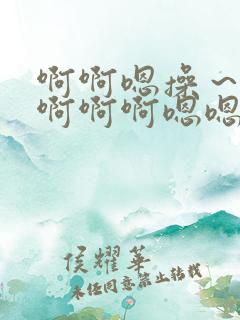 啊啊嗯操～
啊啊啊嗯嗯
侯耀华
未经同意禁止转载